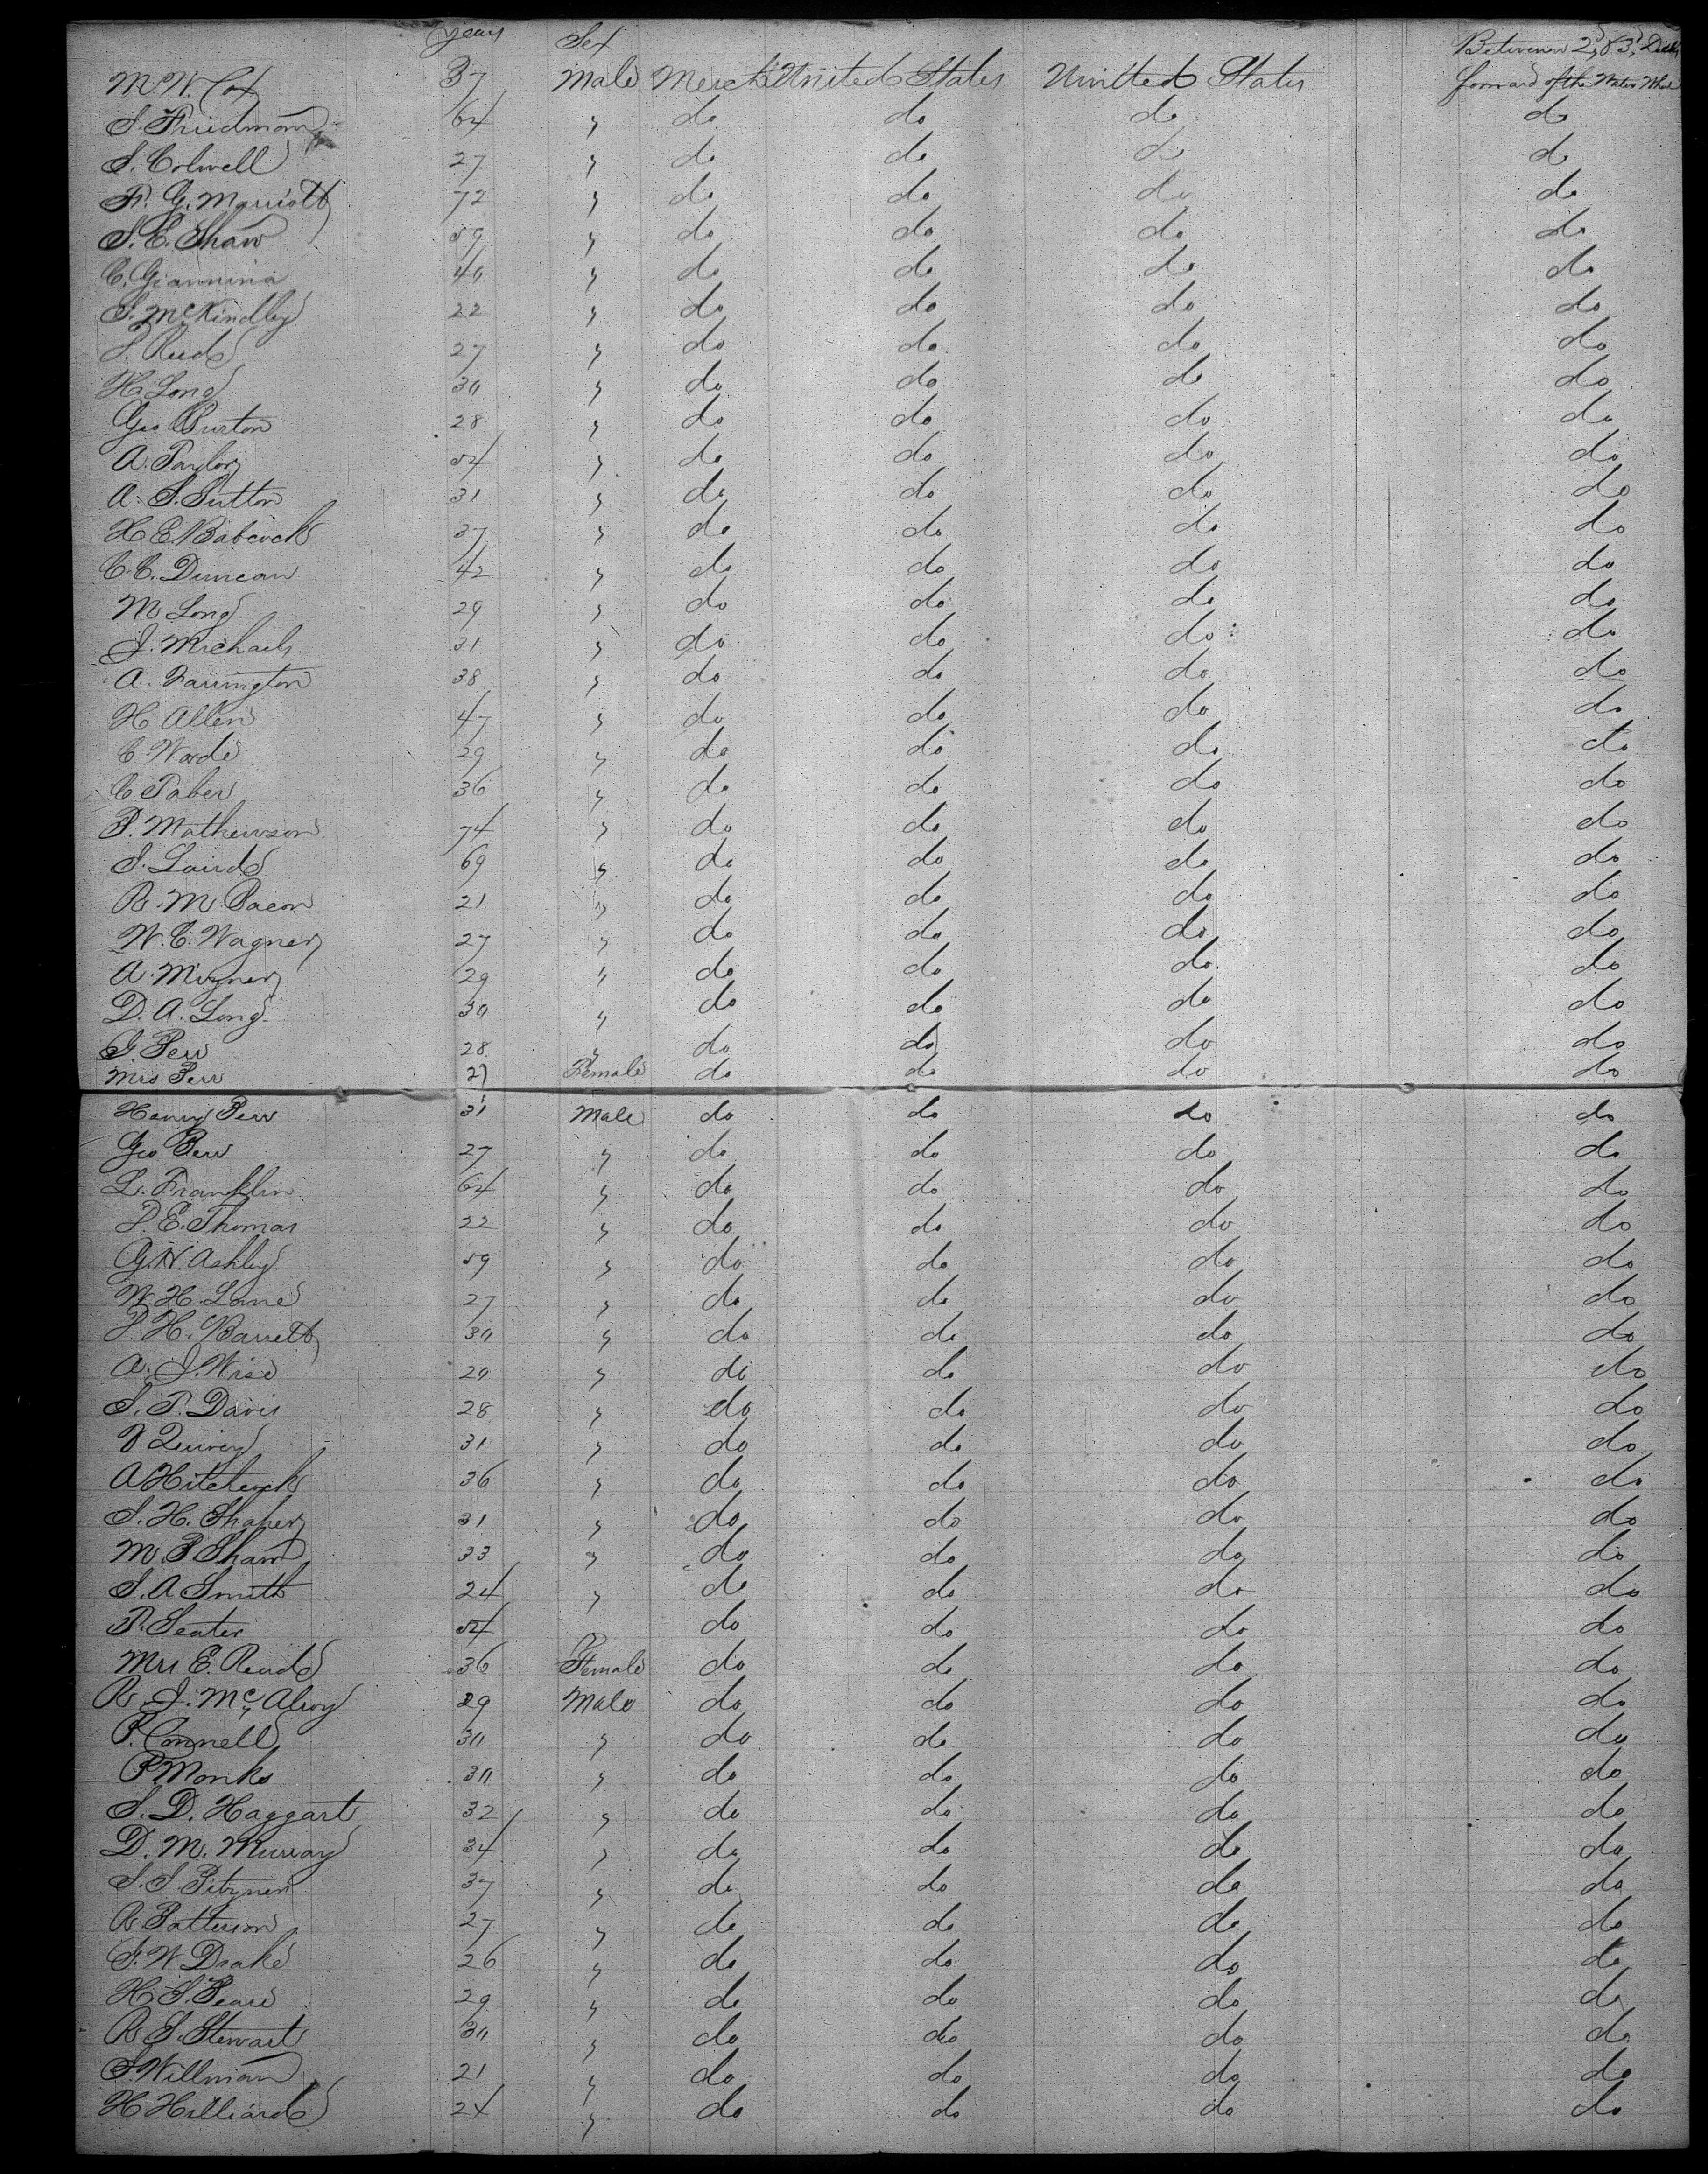 years Sex Between 2d & 3d Decks
M. W. Cox 37 Male Mercht United States United States forward of the Water Wheel
S. Friedman 64 " do do do do
S. Colwell 27 " do do do do
F. G. Marriott 72 " do do do do
S. E. Shaw 59 " do do do do
C. Giannina 40 " do do do do
S. McKindley 22 " do do do do
S. Reed 27 " do do do do
H. Long 30 " do do do do
Geo Burton 28 " do do do do
A. Taylor 54 " do do do do
A. S. Sutton 31 " do do do do
H E Babcock 37 " do do do do
C. C. Duncan 42 " do do do do
M Long 29 " do do do do
J. Michaels 31 " do do do do
A. Farrington 38 " do do do do
H Allen 47 " do do do do
C. Wade 29 " do do do do
C Taber 36 " do do do do
P. Mathewson 74 " do do do do
S. Laird 69 " do do do do
R. M. Bacon 21 " do do do do
W. C. Wagner 27 " do do do do
A. 29 " do do do do
D. A. Long 30 " do do do do
G. Perr 28 " do do do do
Mrs Perr 27 Female do do do do
Henry Perr 31 Male do do do do
Geo Perr 27 " do do do do
L. Franklin 64 " do do do do
P. E. Thomas 22 " do do do do
G. N. Ashley 59 " do do do do
W. H. Lane 27 " do do do do
P. H. Barrett 30 " do do do do
A. J. Wise 20 " do do do do
S. P. Davis 28 " do do do do
31 " do do do do
A Hitchcock 36 " do do do do
S. H. Shafer 31 " do do do do
M. P Shaw 33 " do do do do
S. A Smith 24 " do do do do
P. Seater 54 do do do do
Mrs E. Read 36 Female do do do do
R. J. McAlroy 29 Male do do do do
P. Connell 30 " do do do do
P Monks 30 " do do do do
S. D. Haggart 32 " do do do do
D. M. Murray 34 " do do do do
S. S. 37 " do do do do
R. Patterson 27 " do do do do
G. W Drake 26 " do do do do
H. S. Pease 29 " do do do do
R. S. Stewart 30 " do do do do
S. Willman 21 " do do do do
H Hilliard 24 " do do do do